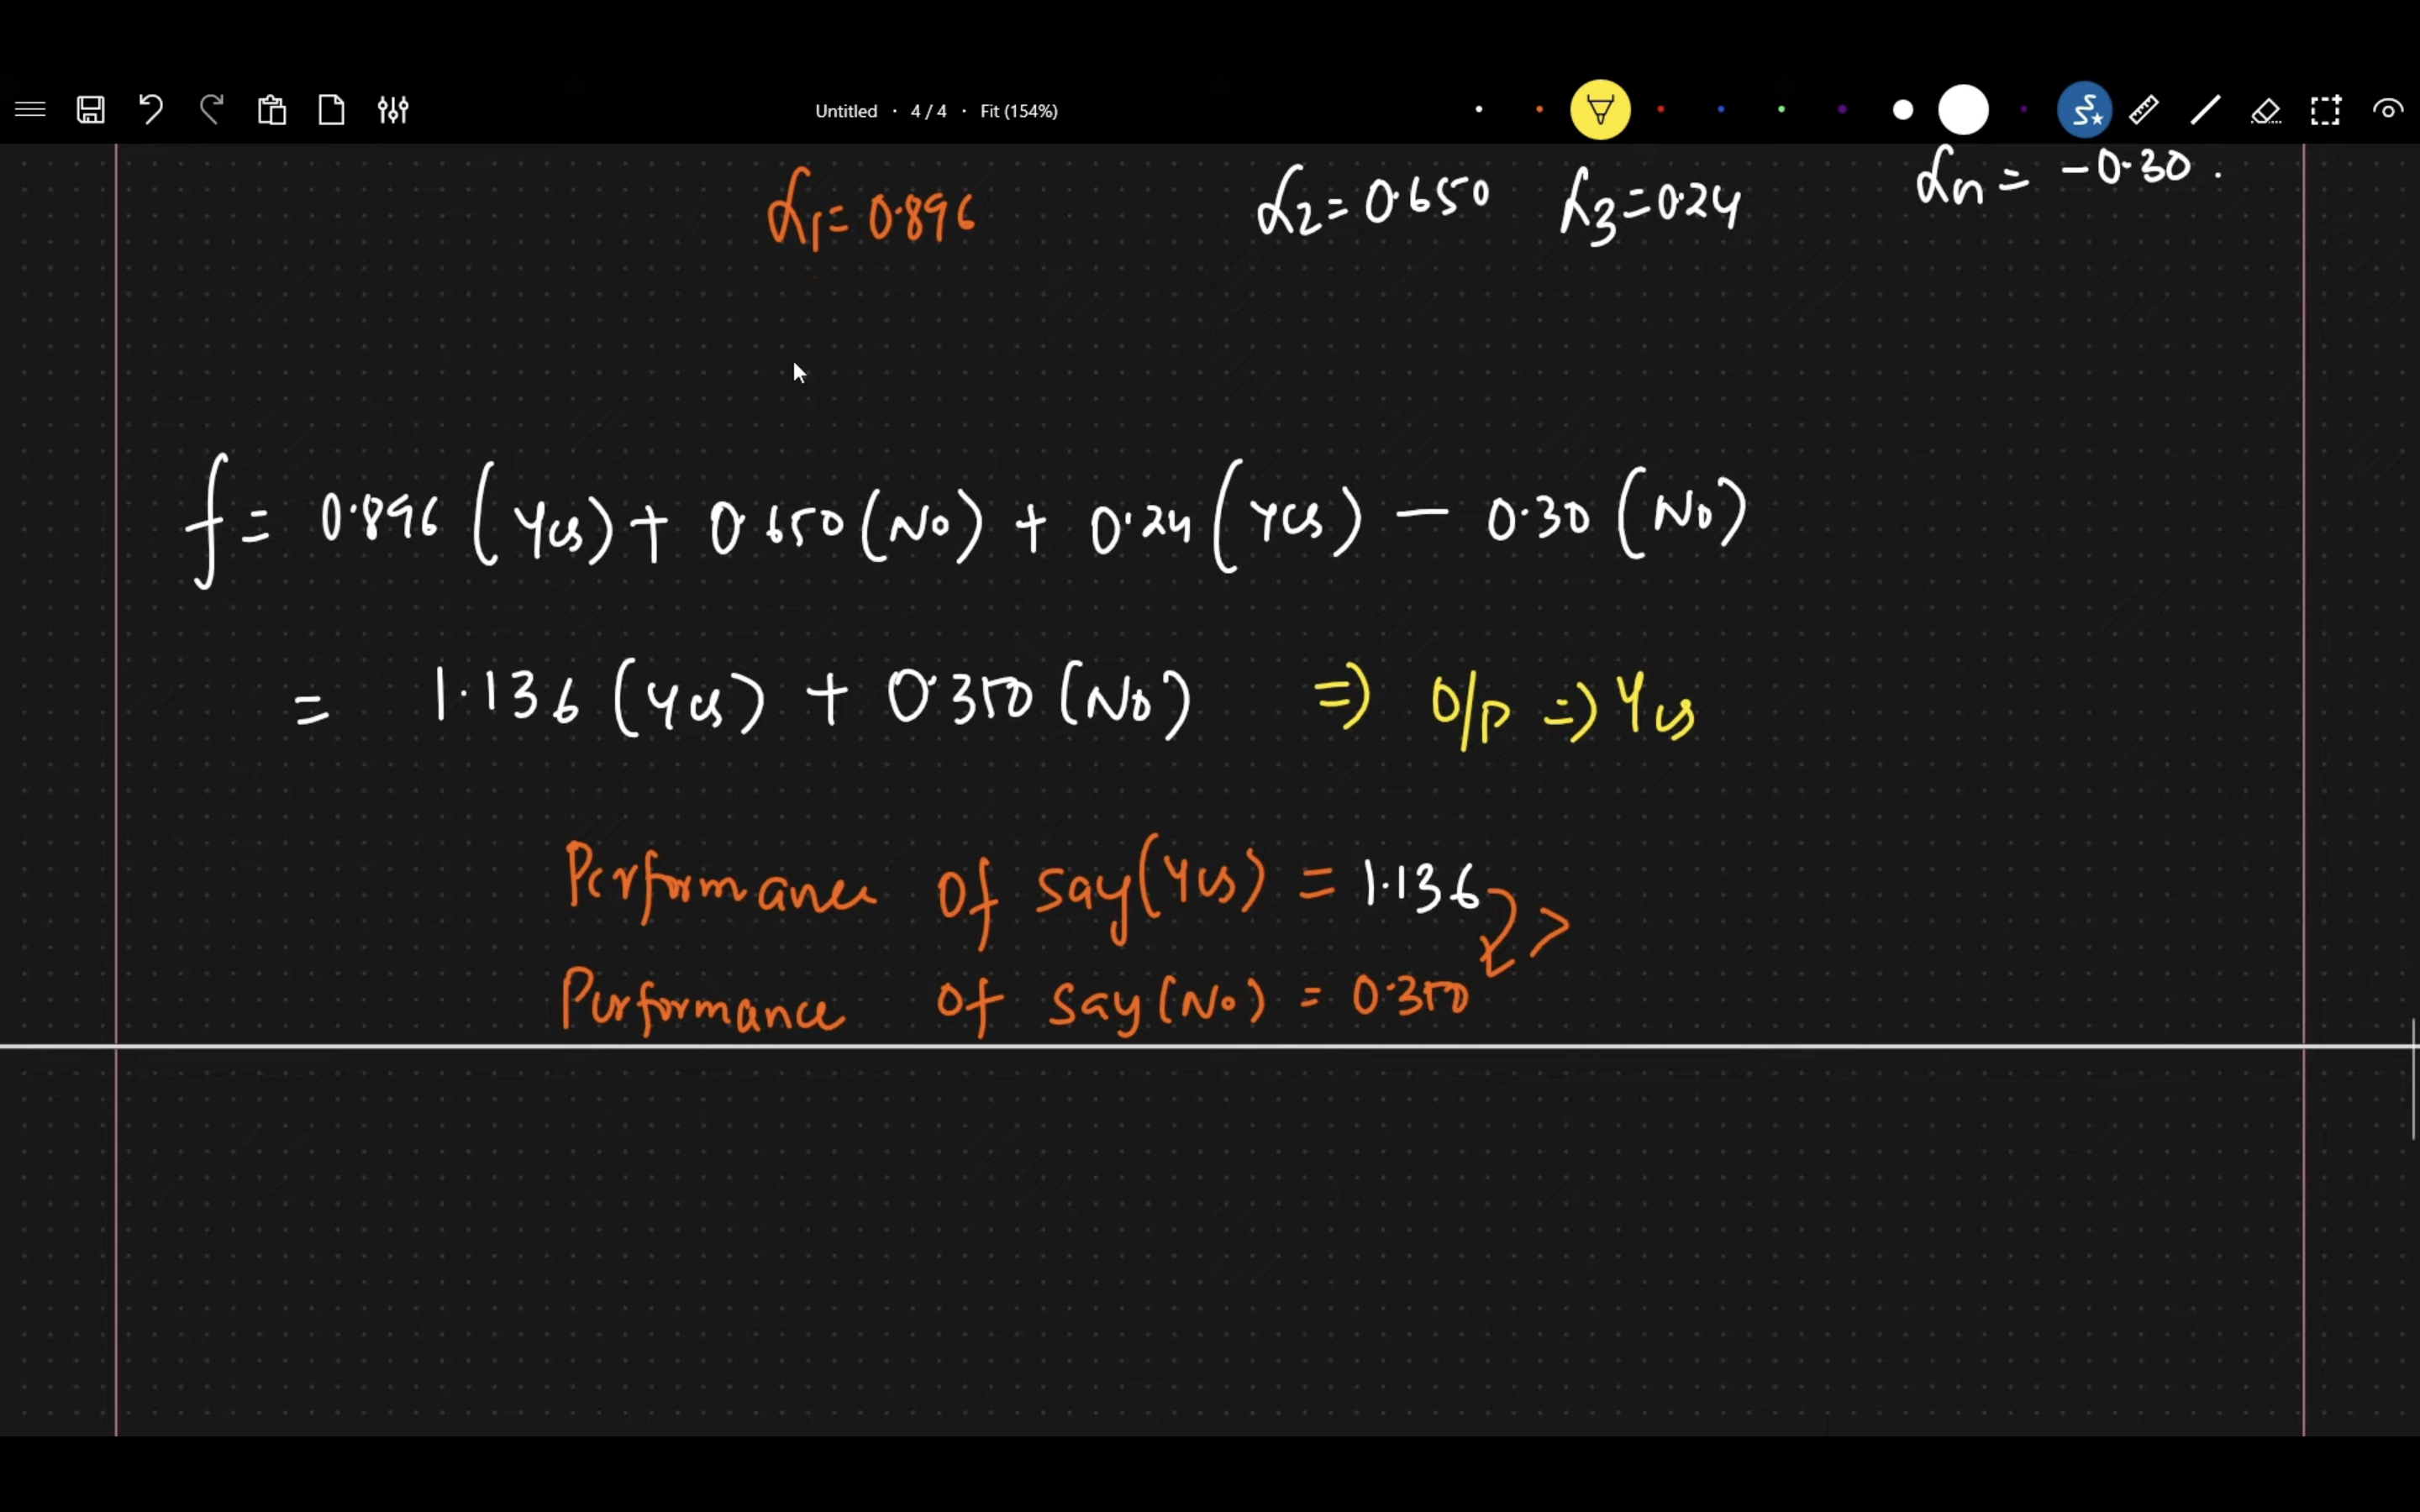 Untitled · 4 / 4 · Fit (154%)
α1 = 0.896 α2 = 0.650 α3 = 0.24 αn = -0.30.
f = 0.896 (Yes) + 0.650 (No) + 0.24 (Yes) - 0.30 (No)
= 1.136 (Yes) + 0.350 (No) => O/P => Yes
Performance Of say (Yes) = 1.136 >
Performance Of say (No) = 0.350